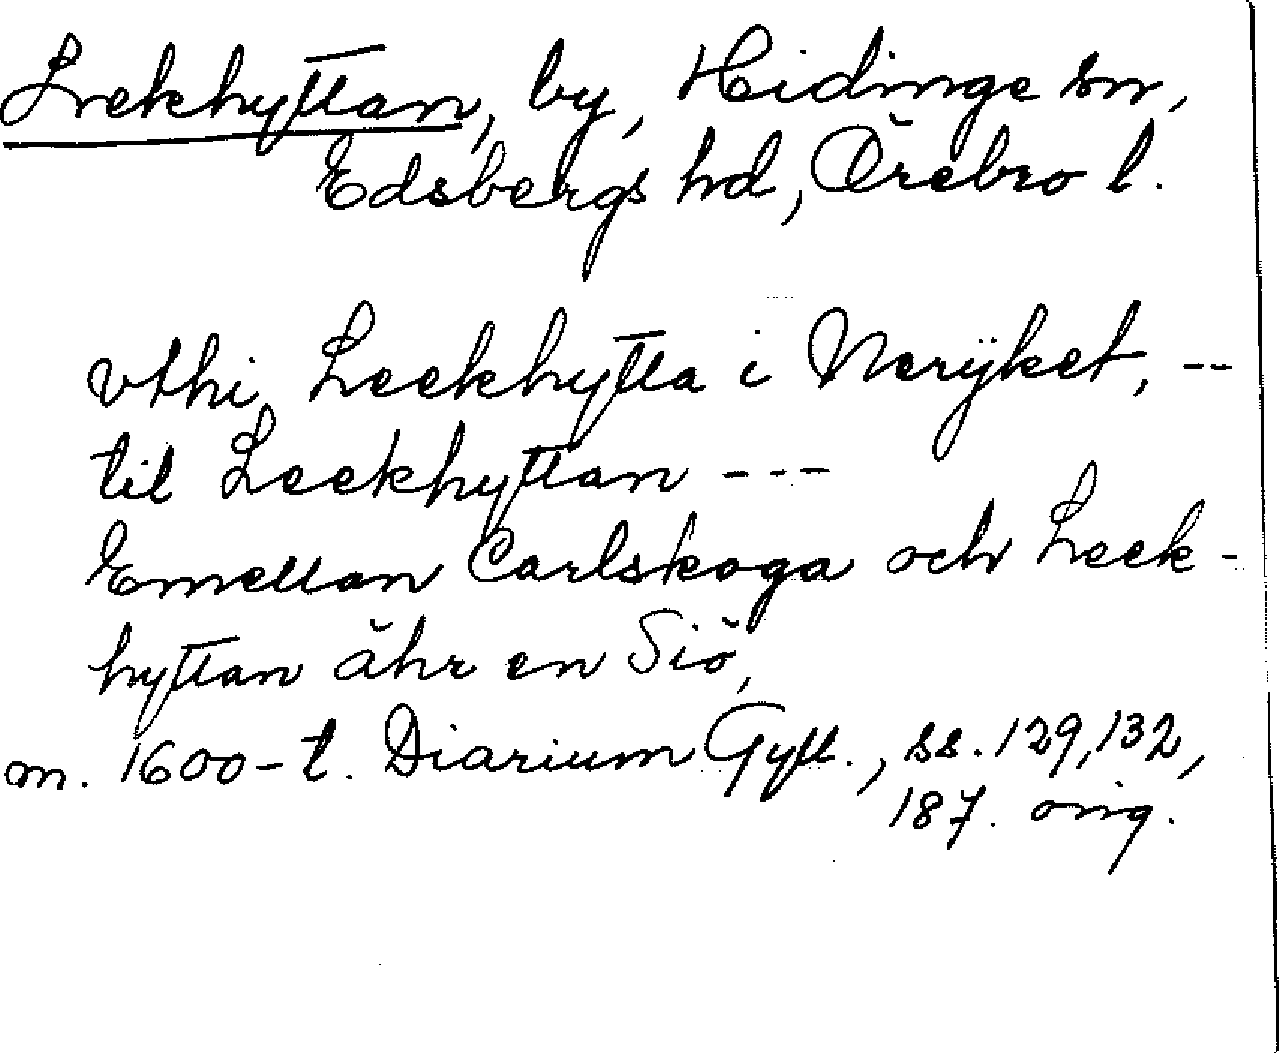 Lekhyttan, by, Hidinge sn,
Edsbergs hd, Örebro l.
vthi Leekhytta i Nerÿket, --
til Leekhyttan ---
Emellan Carlskoga och Leek-
hyttan ähr en Siö,
m. 1600-t. Diarium Gyll., ss. 129, 132,
187. orig.